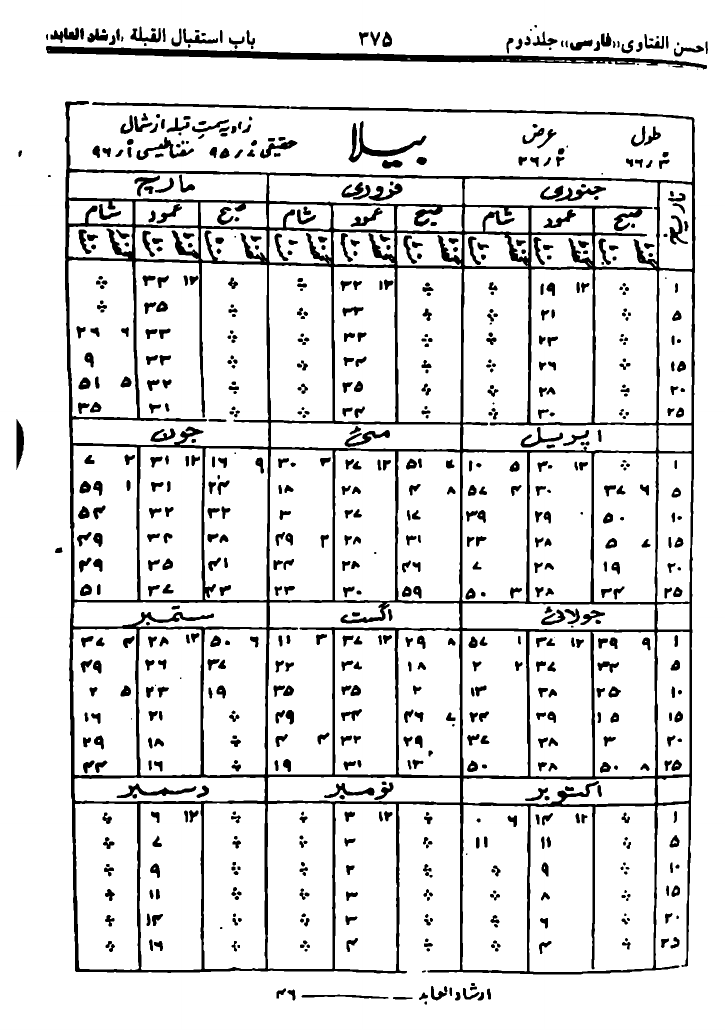 احسن الفتاوی «فارسی» جلد دوم ۳۷۵ باب استقبال القبلة «ارشاد العابد»
طول عرض بیلا زاویہ سمت قبلہ از شمال
حقیقی مقناطیسی
تاریخ جنوری فروری مارچ
صبح عمود شام صبح عمود شام صبح عمود شام
۱ ÷ ۱۲ ۱۹ ÷ ÷ ۱۲ ۳۲ ÷ ÷ ۱۲ ÷
۵ ÷ ۲۱ ÷ ÷ ۳۳ ÷ ÷ ۳۵ ÷
۱۰ ÷ ۲۳ ÷ ÷ ÷ ÷ ۳۳ ۶ ۲۶
۱۵ ÷ ۲۶ ÷ ÷ ۳۴ ÷ ÷ ۳۳ ۹
۲۰ ÷ ۲۸ ÷ ÷ ۳۵ ÷ ÷ ۳۲ ۵ ۵۱
۲۵ ÷ ۳۰ ÷ ÷ ۳۴ ÷ ÷ ۳۱ ۳۵
اپریل مئی جون
۱ ÷ ۱۲ ۳۰ ۵ ۱۰ ۷ ۵۱ ۱۲ ۲۷ ۳ ۳۰ ۹ ۱۶ ۱۲ ۳۱ ۲ ۷
۵ ۶ ۳۷ ۳۰ ۴ ۵۷ ۸ ۴ ۲۸ ۱۸ ۲۴ ۳۱ ۱ ۵۹
۱۰ ۵۰ ۲۹ ۳۹ ۱۷ ۲۷ ۳ ۳۲ ۳۲ ۵۴
۱۵ ۷ ۵ ۲۸ ۲۳ ۳۱ ۲۸ ۲ ۴۹ ۳۸ ۳۴ ۴۹
۲۰ ۱۹ ۲۸ ۷ ۴۶ ۲۸ ۳۴ ۴۱ ۳۵ ۴۹
۲۵ ۳۴ ۲۸ ۳ ۵۰ ۵۹ ۳۰ ۲۳ ۴۳ ۳۷ ۵۱
جولائی اگست ستمبر
۱ ۹ ۳۹ ۱۲ ۳۷ ۱ ۵۷ ۸ ۲۹ ۱۲ ۳۷ ۳ ۱۱ ۶ ۵۰ ۱۲ ۲۸ ۴ ۳۷
۵ ۳۲ ۳۷ ۲ ۲ ۱۸ ۳۷ ۲۲ ۳۷ ۲۶ ۴۹
۱۰ ۲۵ ۳۸ ۱۳ ۲ ۳۵ ۳۵ ۱۹ ۲۳ ۵ ۲
۱۵ ۱۵ ۳۹ ۲۴ ۷ ۴۶ ۳۴ ۴۹ ÷ ۲۱ ۱۶
۲۰ ۳ ۳۸ ۳۷ ۲۹ ۳۲ ۴ ۴ ÷ ۱۸ ۲۹
۲۵ ۸ ۵۰ ۳۸ ۵۰ ۱۳ ۳۱ ۱۹ ÷ ۱۶ ۴۴
اکتوبر نومبر دسمبر
۱ ÷ ۱۲ ۱۴ ۶ ۰ ÷ ۱۲ ۳ ÷ ÷ ۱۲ ۶ ÷
۵ ÷ ۱۱ ۱۱ ÷ ۳ ÷ ÷ ۷ ÷
۱۰ ÷ ۹ ÷ ÷ ۲ ÷ ÷ ۹ ÷
۱۵ ÷ ۸ ÷ ÷ ۳ ÷ ÷ ۱۱ ÷
۲۰ ÷ ۶ ÷ ÷ ۳ ÷ ÷ ۱۴ ÷
۲۵ ÷ ۴ ÷ ÷ ۴ ÷ ÷ ۱۶ ÷
ارشاد العابد ــــــ ۴۶